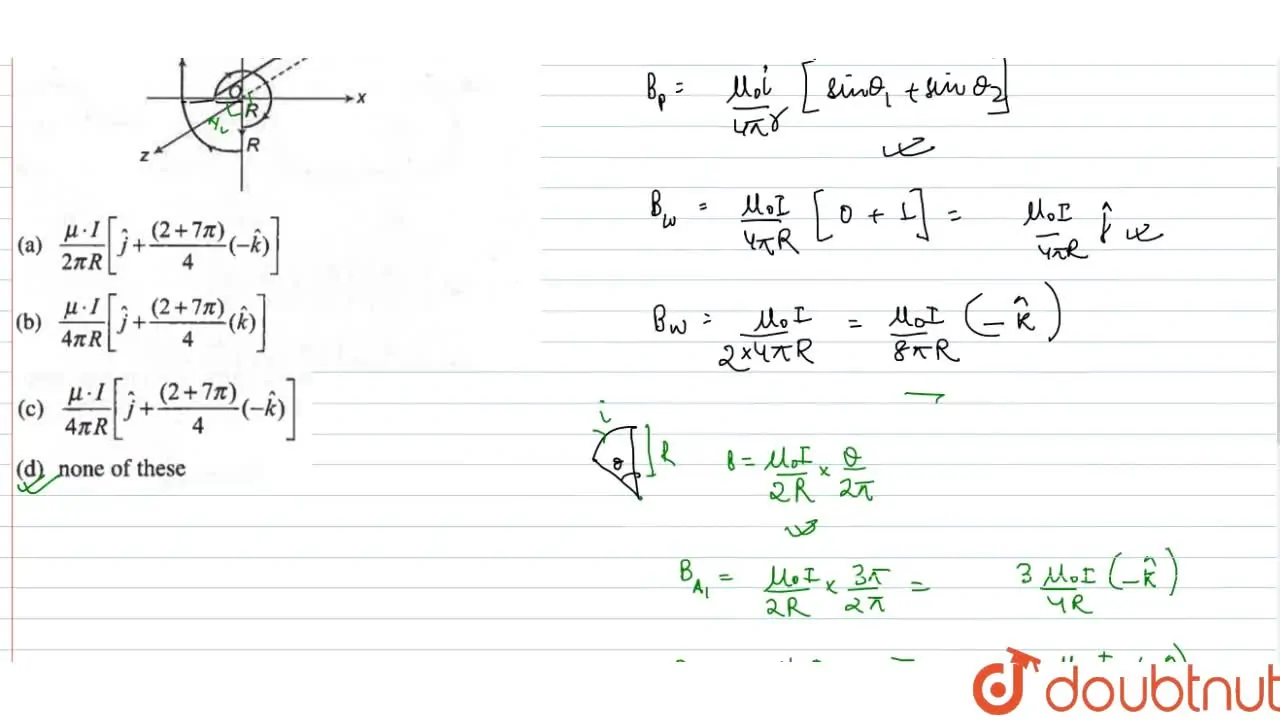 O
x
R
R
z
(a) μ·I/2πR [ĵ + (2+7π)/4 (-k̂)]
(b) μ·I/4πR [ĵ + (2+7π)/4 (k̂)]
(c) μ·I/4πR [ĵ + (2+7π)/4 (-k̂)]
(d) none of these
Bp = μ₀i/4πr [sinθ₁ + sinθ₂]
Bw = μ₀I/4πR [0 + 1] = μ₀I/4πR ĵ
Bw = μ₀I/2×4πR = μ₀I/8πR (-k̂)
i
θ
R
B = μ₀I/2R × θ/2π
B_A₁ = μ₀I/2R × 3π/2π = 3μ₀I/4R (-k̂)
doubtnut